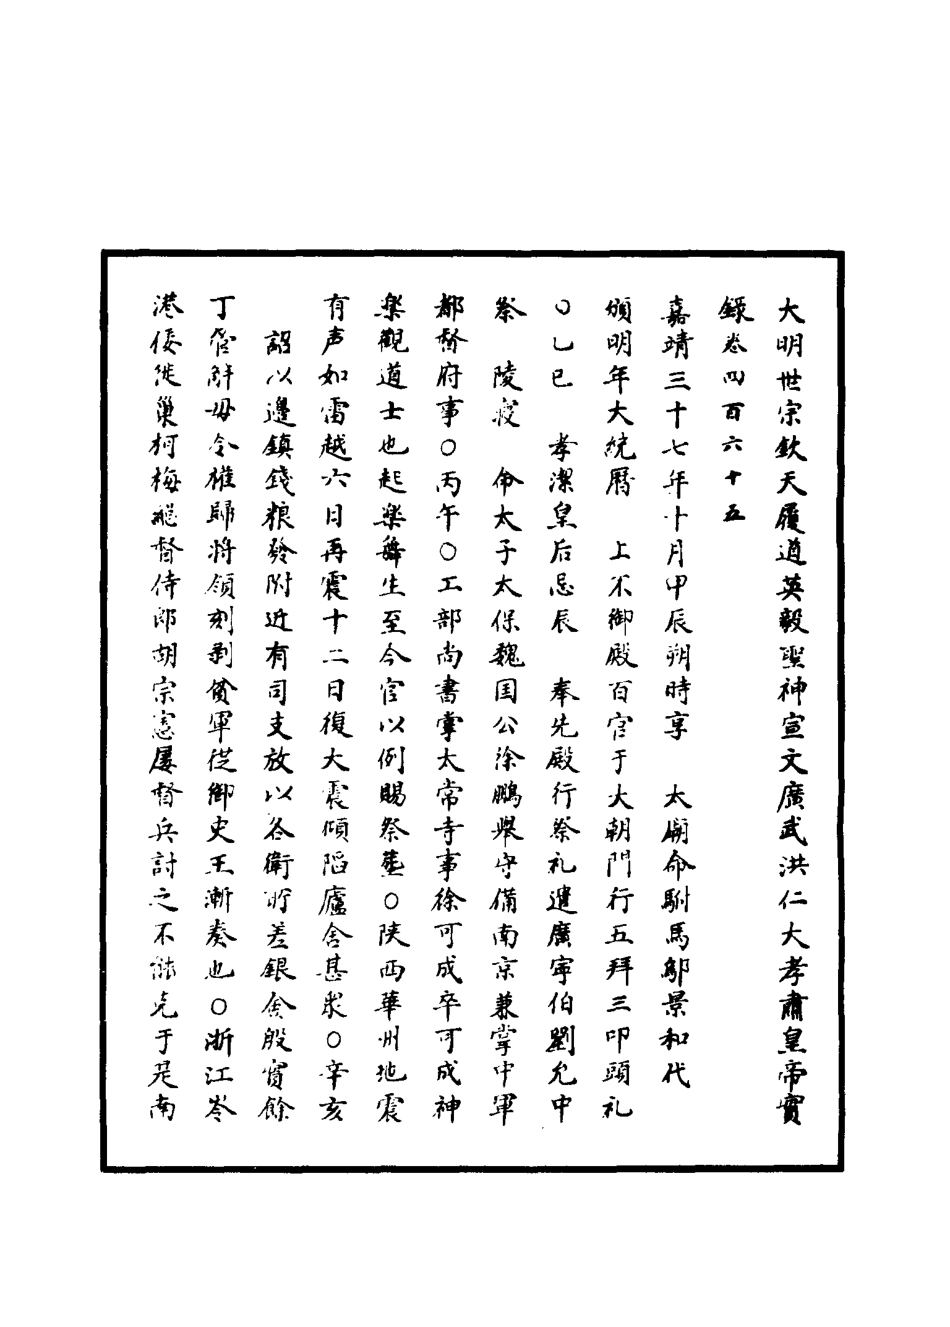 大明世宗欽天履道英毅聖神宣文廣武洪仁大孝肅皇帝實
錄卷四百六十五
嘉靖三十七年十月甲辰朔時享　太廟命駙馬鄔景和代
頒明年大統曆　上不御殿百官于大朝門行五拜三叩頭礼
〇乙巳　孝潔皇后忌辰　奉先殿行祭礼遣廣寧伯劉允中
祭　陵寢　命太子太保魏国公徐鵬舉守備南京兼掌中軍
都督府事〇丙午〇工部尚書掌太常寺事徐可成卒可成神
楽觀道士也起楽舞生至今官以例賜祭塟〇陕西華州地震
有声如雷越六日再震十二日復大震傾陷廬舍甚衆〇辛亥
詔以邊鎮錢粮發附近有司支放以各衛所差銀僉殷實餘
丁管解毋令推歸將領刻剥貧軍従御史王漸奏也〇浙江岑
港倭徙巢柯梅總督侍郎胡宗憲屢督兵討之不能克于是南